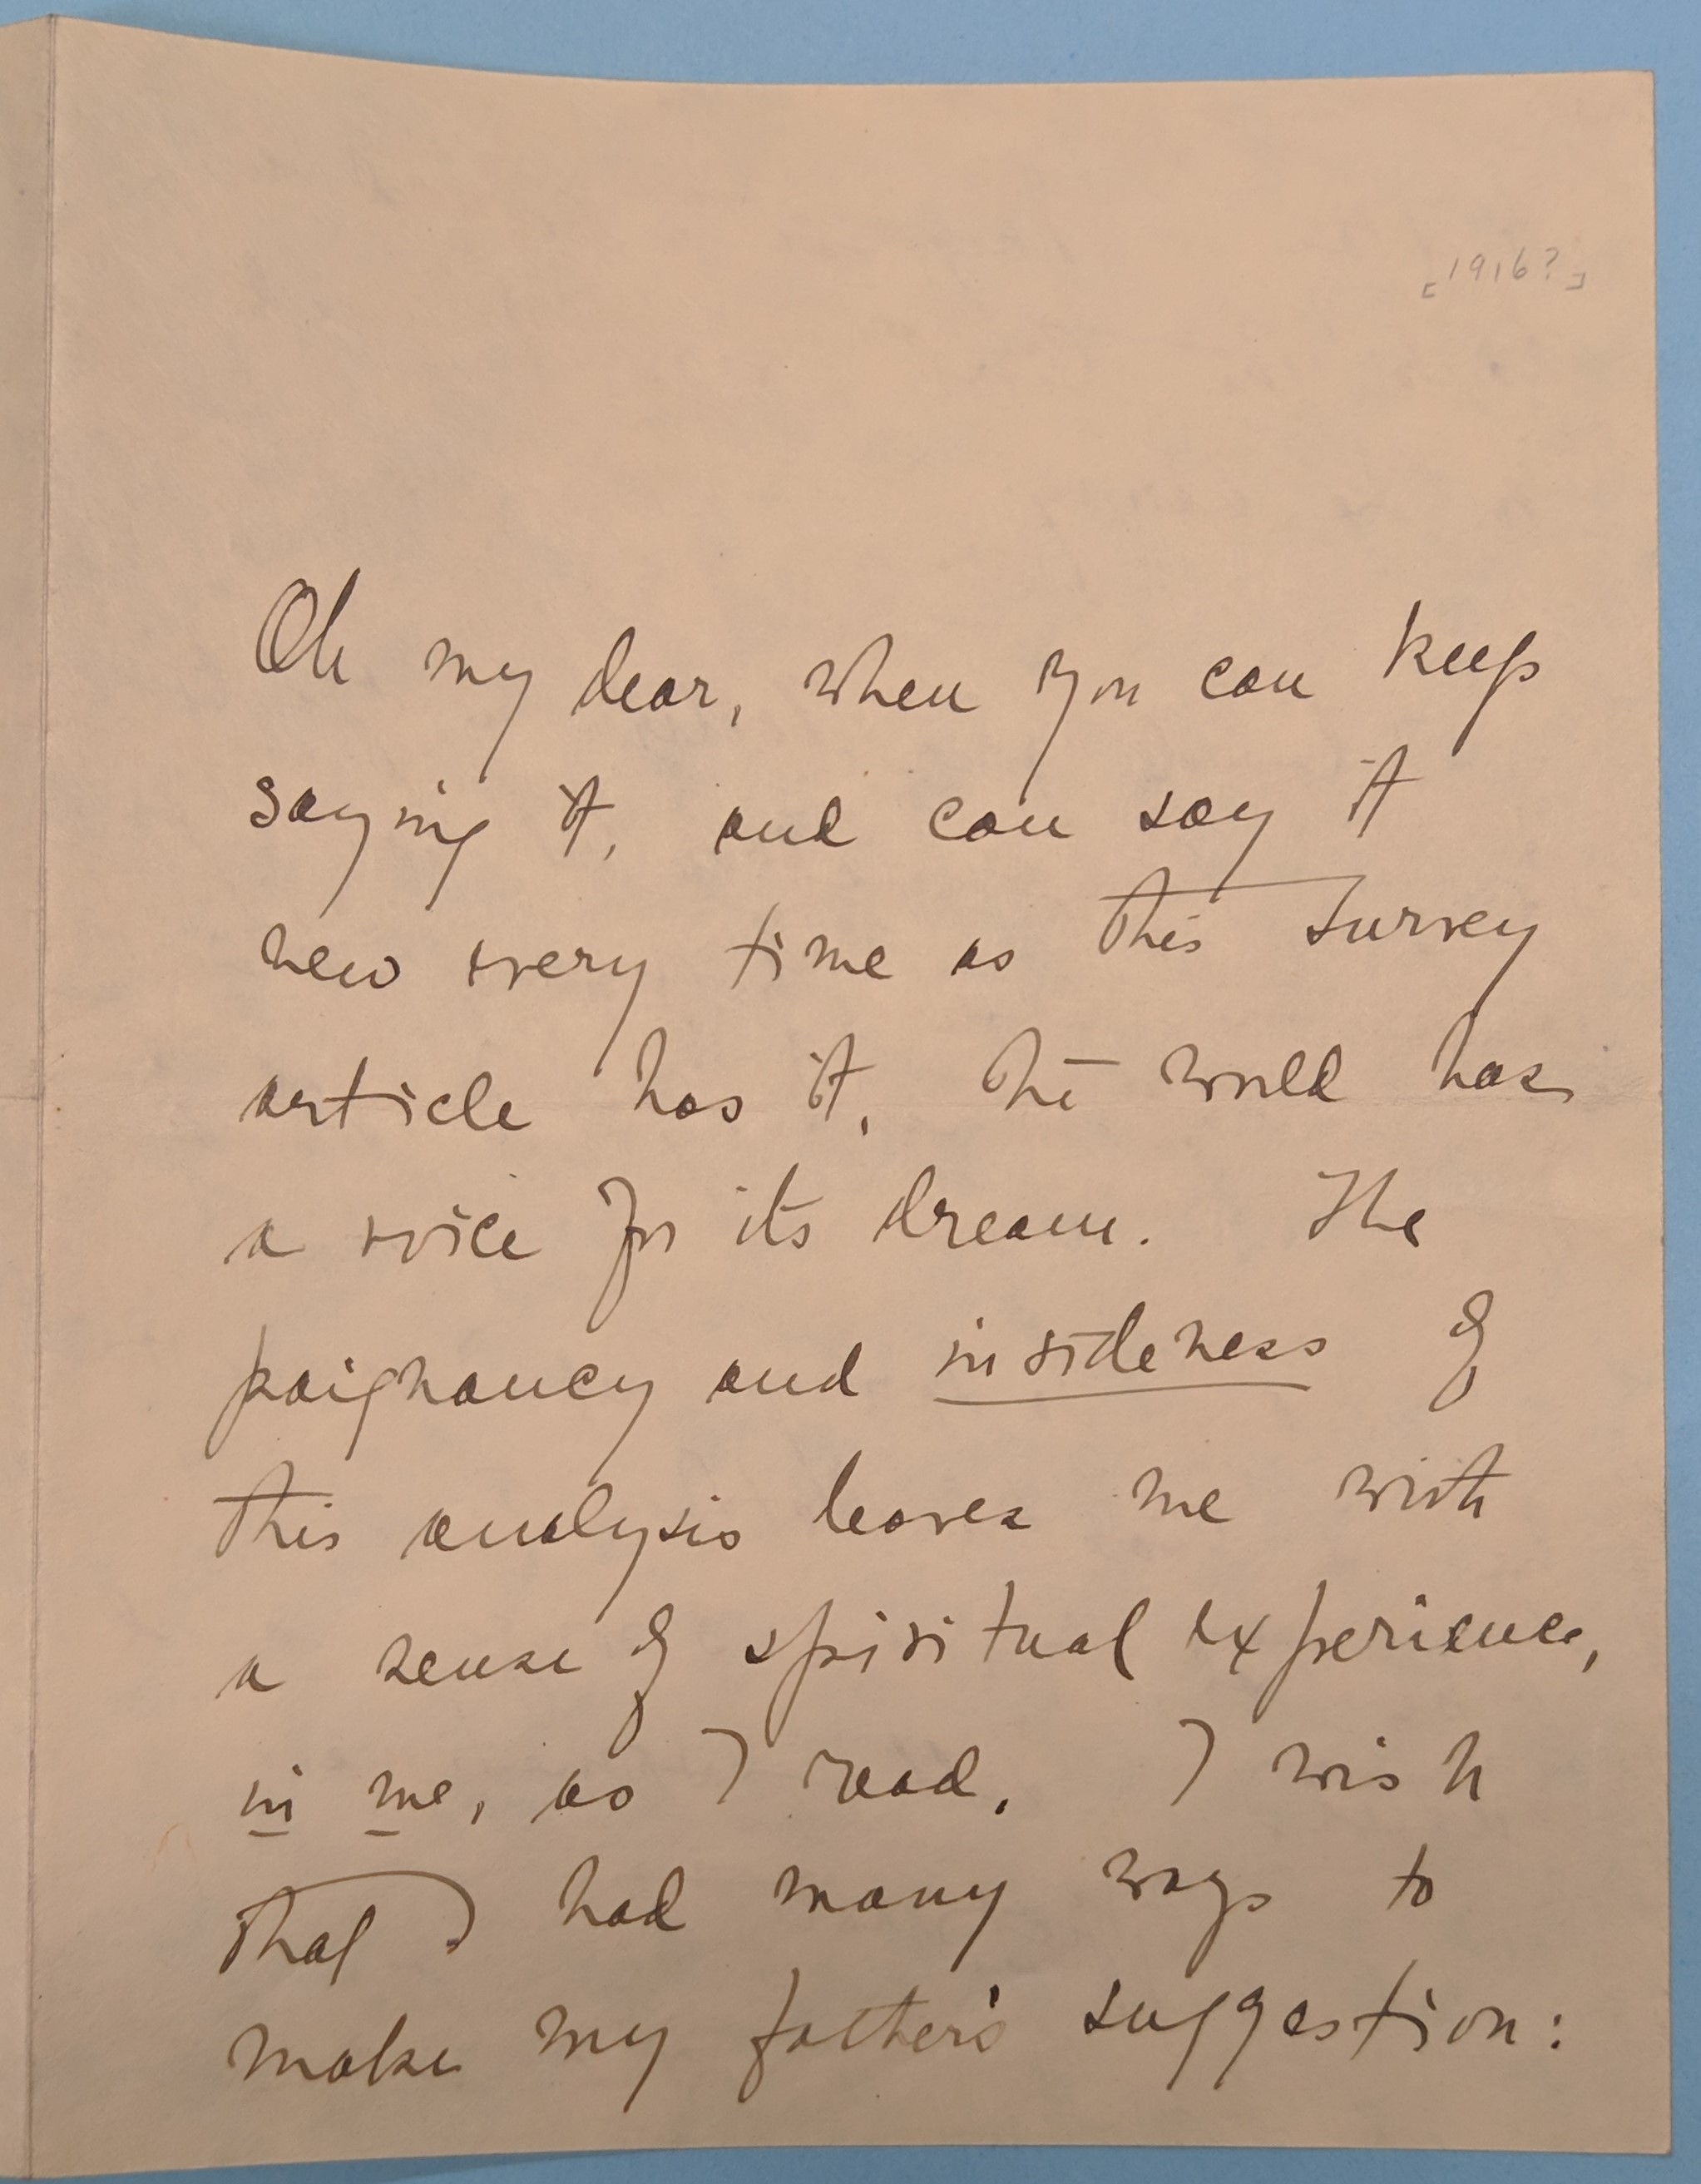 [1916?]
Oh my dear, when you can keep
saying it, and can say it
new every time as this Survey
article has it, the world has
a voice for its dream. The
poignancy and insideness of
this analysis leaves me with
a sense of spiritual experience,
in me, as I read. I wish
that I had many ways to
make my father's suggestion: